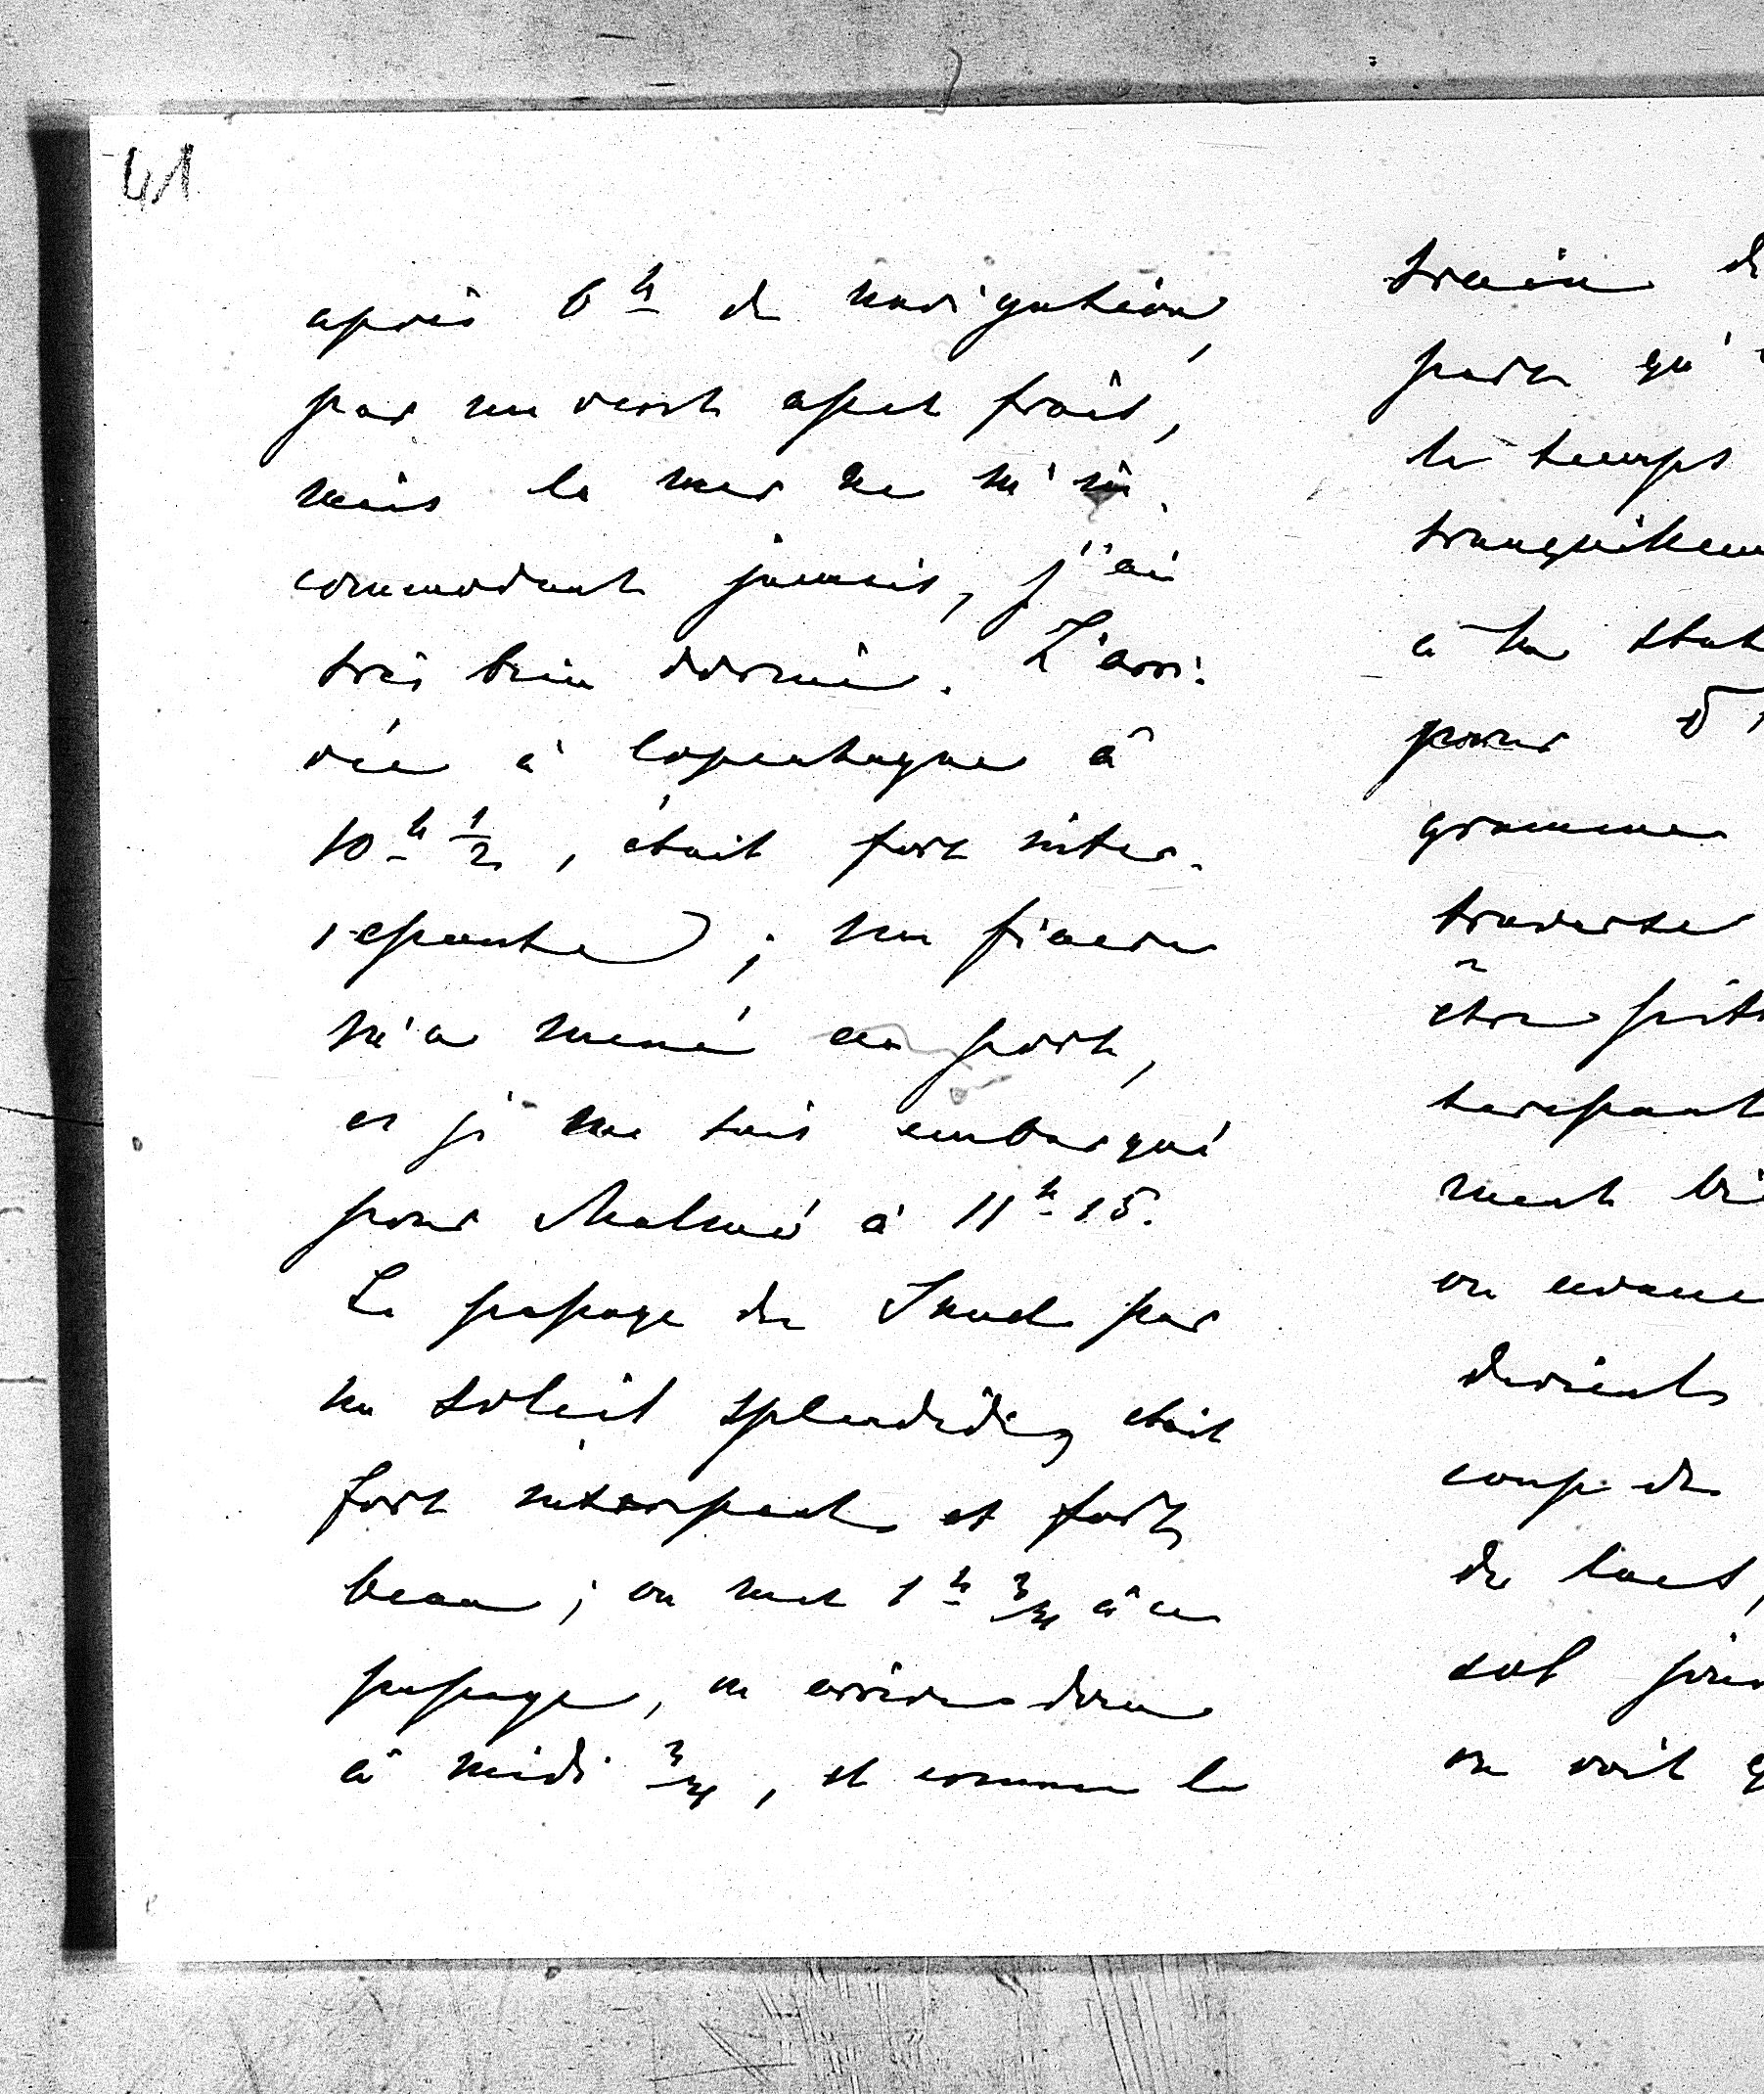 41
après 6h de navigation,
par un vent assez frais,
mais la mer ne m'in-
commodant jamais, j'ai
très bien dormi. L'arri-
vée à Copenhague à
10h 1/2, était fort inter-
ressante ; un fiacre
m'a mené au port,
et je me suis embarqué
pour Malmö à 11h 15.
Le passage du Sund par
un soleil splendide, était
fort intéressant et fort
beau ; on met 1h 3/4 à ce
passage, on arrive donc
à midi 3/4, et comme le
train de
part qu'
le temps
à la stat
pour
gramme
traverse
être pitt
téressant
ment bi
on avanc
devient
coup de
de lacs,
sol
on voit q